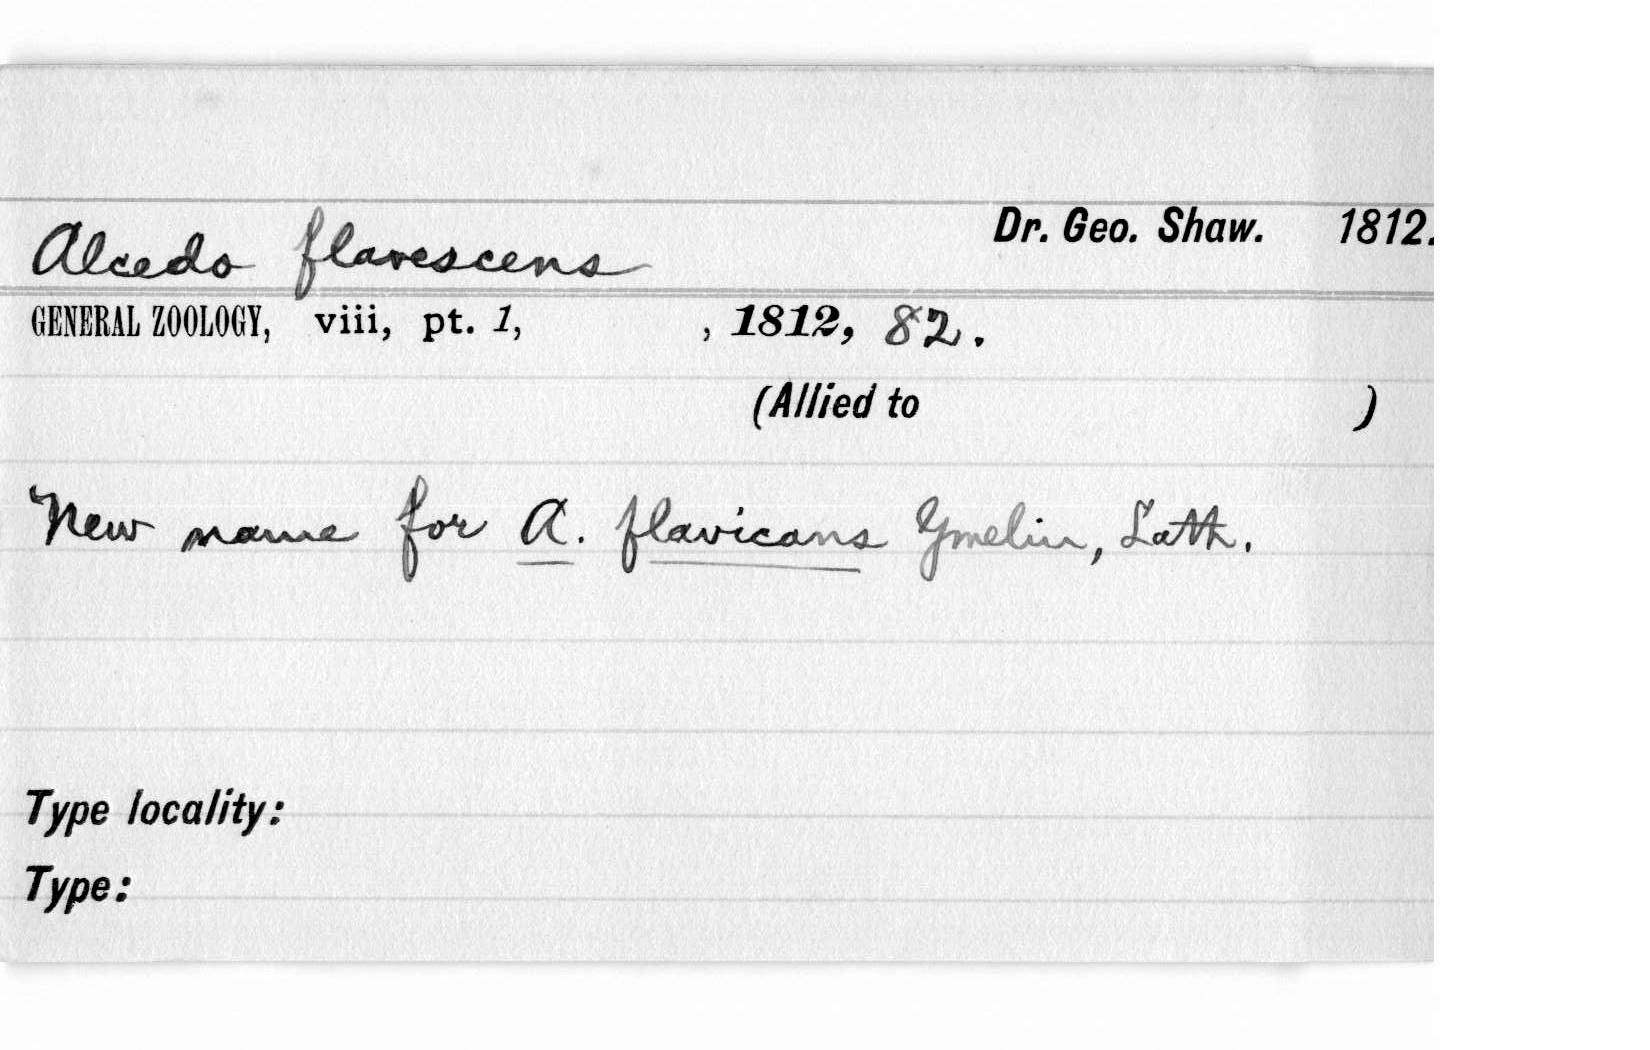 Alcedo flavescens Dr. Geo. Shaw. 1812.
GENERAL ZOOLOGY, viii, pt. 1, , 1812, 82.
(Allied to )
New name for A. flavicans Gmelin, Lath.
Type locality:
Type: